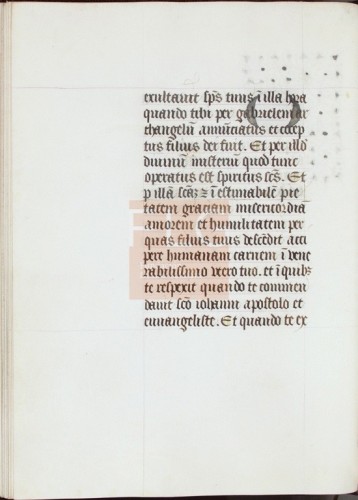 exultavit sps tuus ī illa hora
quando tibi per gabrielem ar
changelū annūciatus et cōcep
tus filius dei fuit. Et per illd
divinū misteriū quod tunc
operatus est spiritus scs. Et
p illā scās ⁊ īestimabilē pie
tatem graciam misericordiā
amorem et humilitatem per
quas filius tuus descēdit acci
pere humanam carnem ī vene
rabilissimo utero tuo. et ī quibs
te respexit quando te commen
davit scō iohanni apostolo et
euuangeliste. Et quando te ex